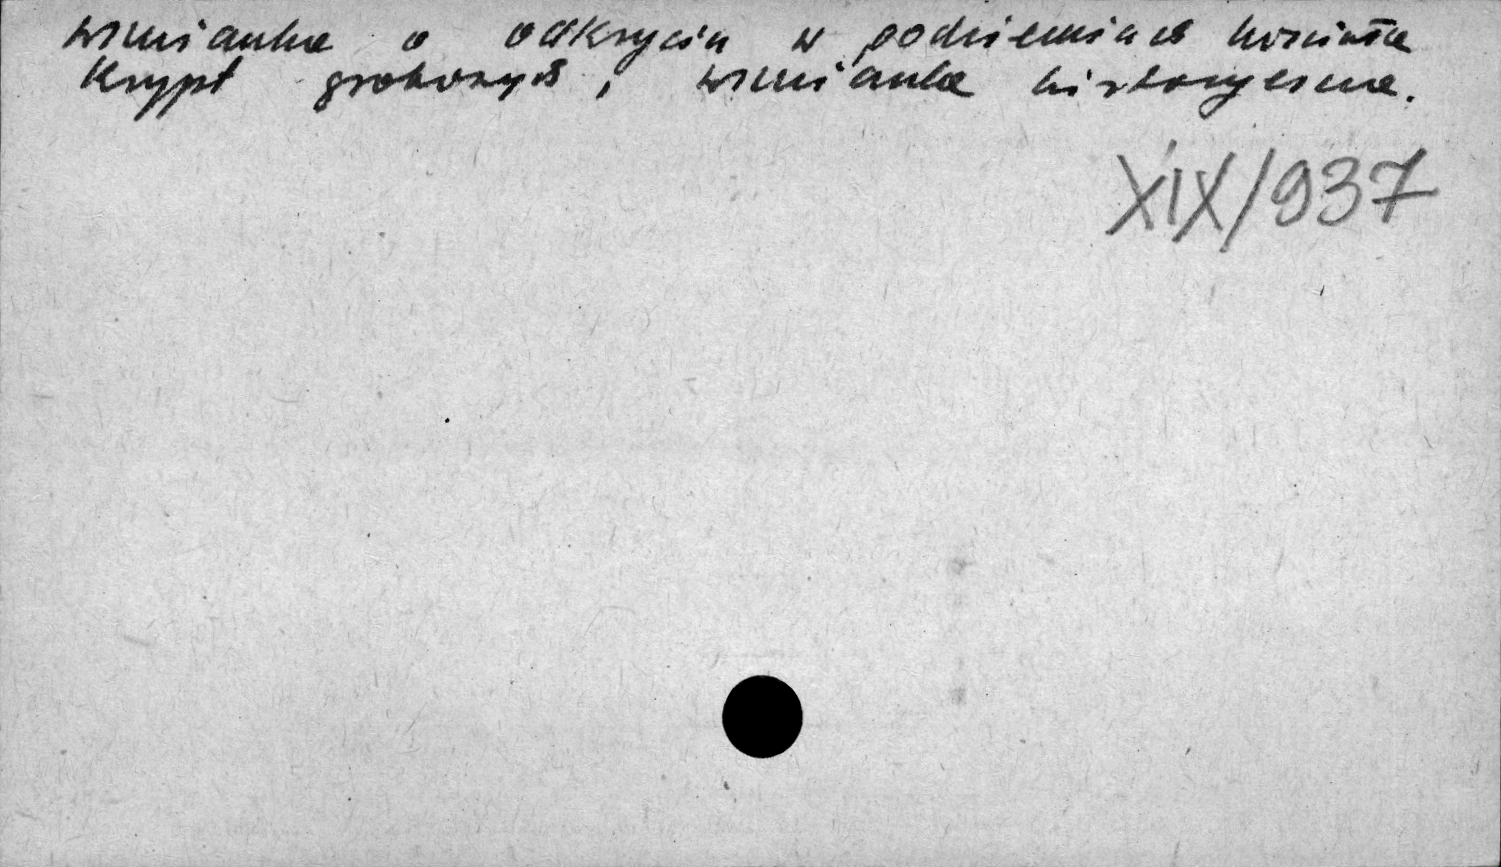 wzmianka o odkryciu w podziemiach kościoła
krypt grobowych, wzmianka historyczna.
XIX/937